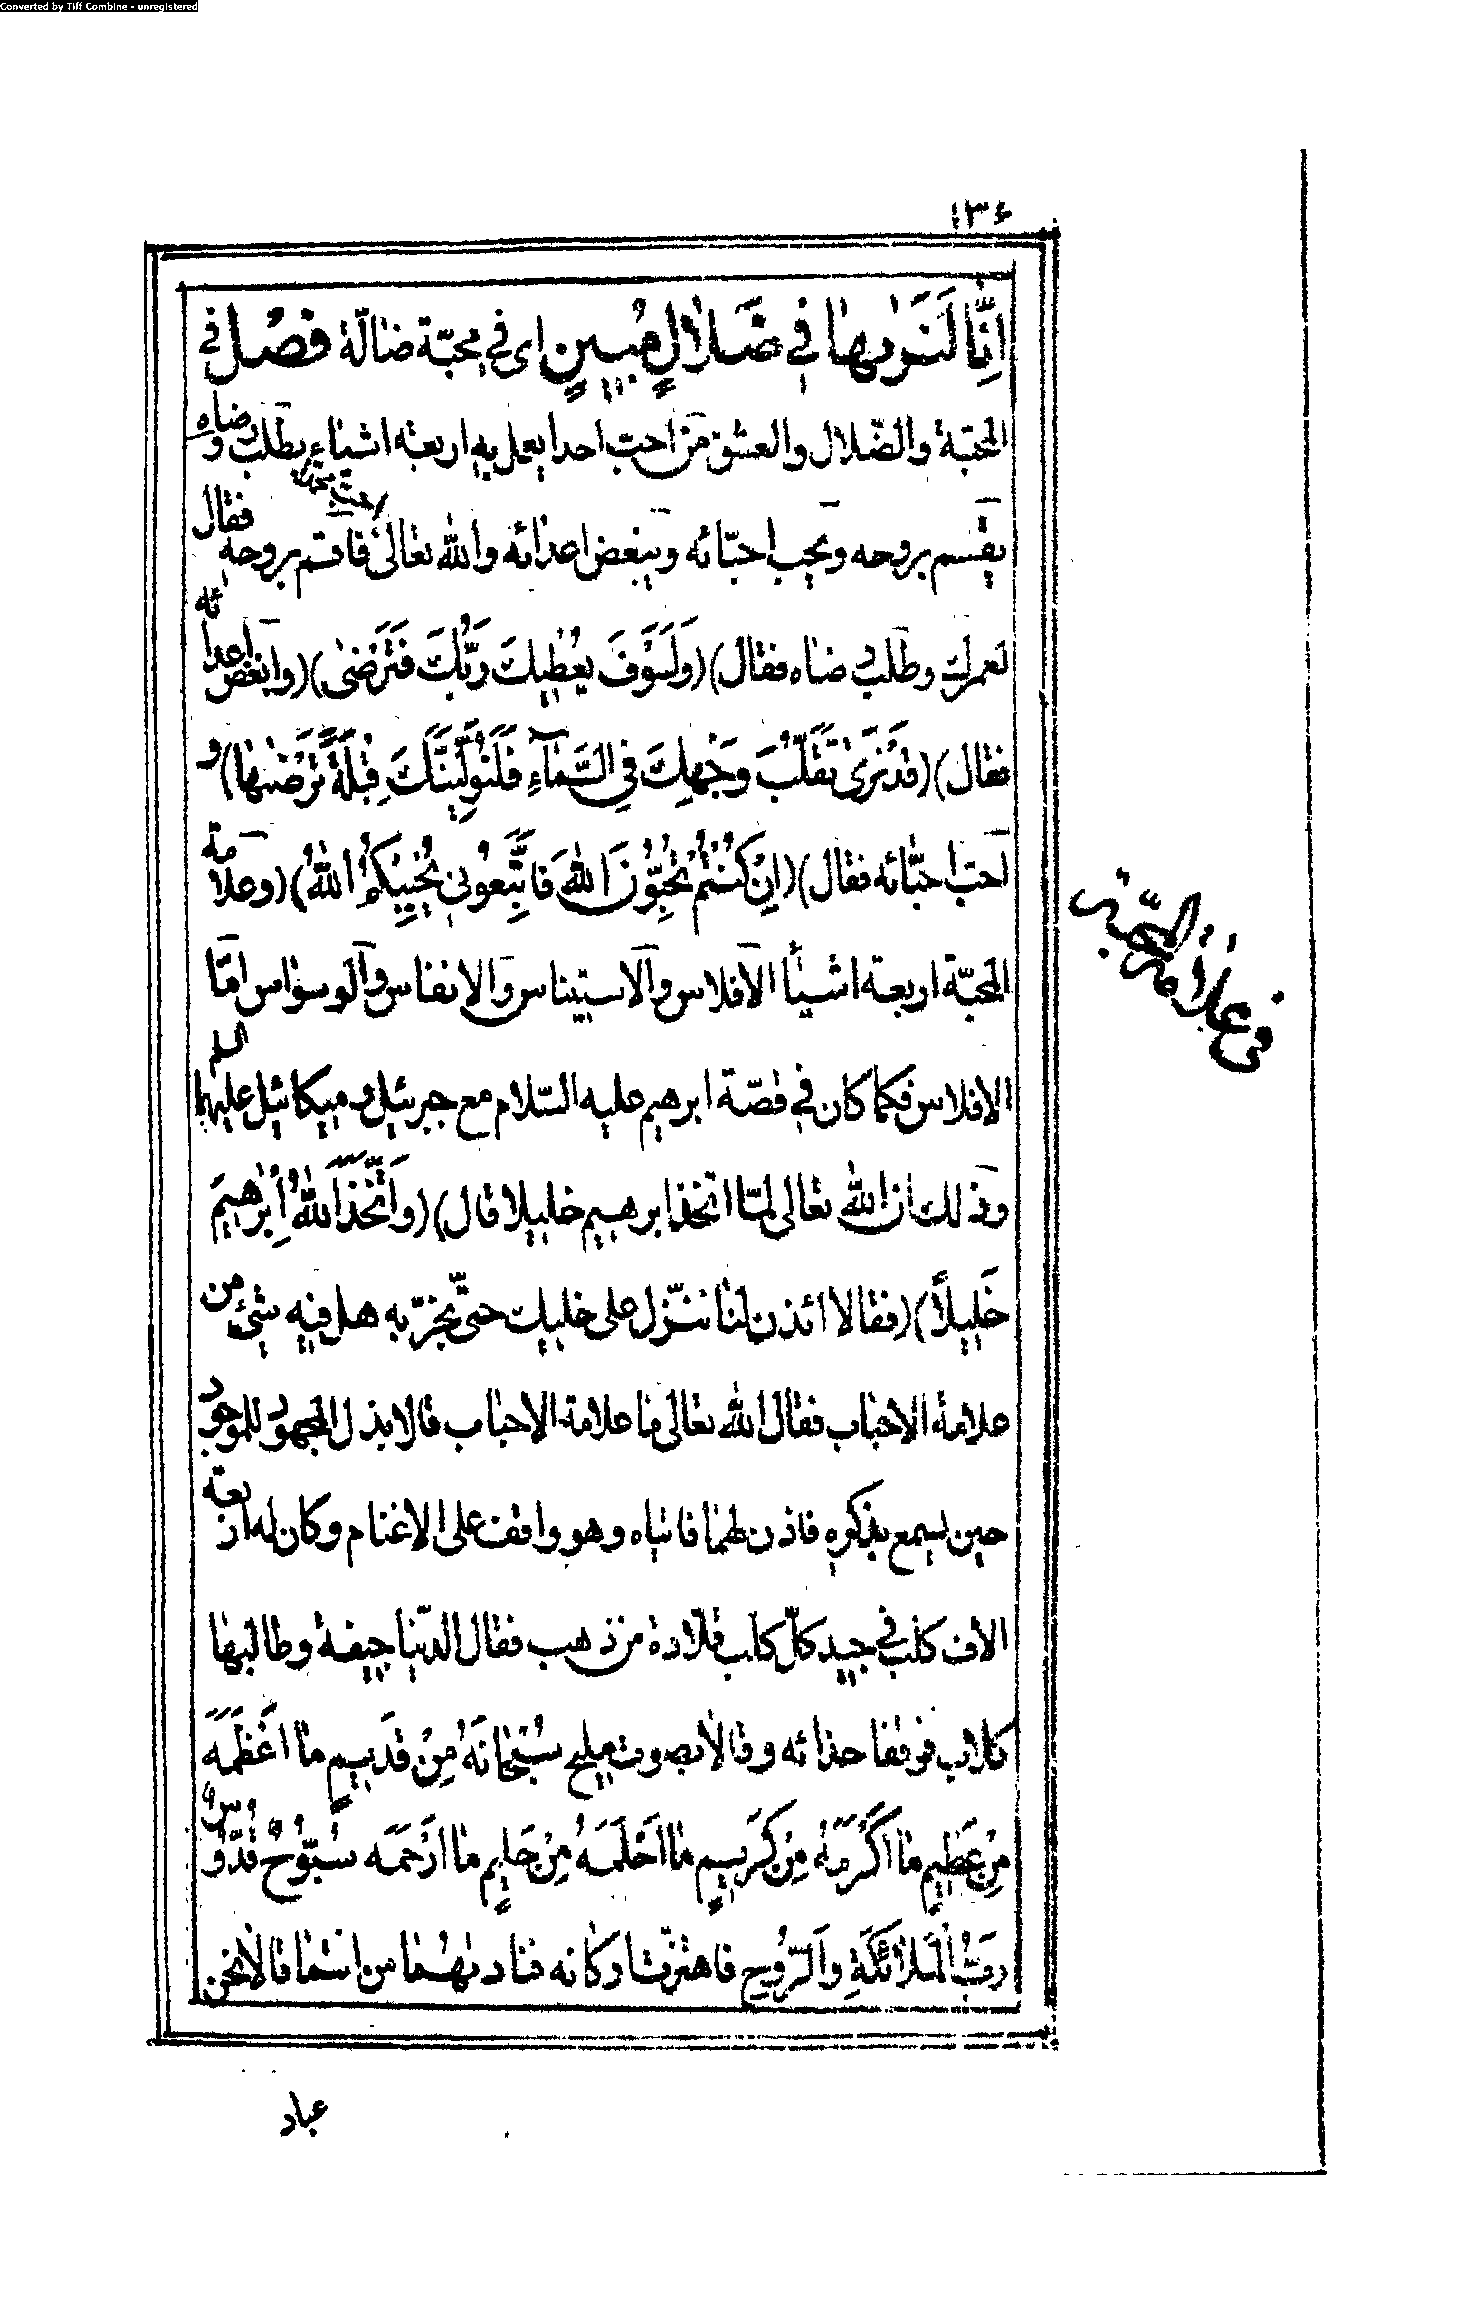 Converted by Tiff Combine - unregistered
١٣۶
اِنَّا لَنَرٰىهَا فِي ضَلَالٍ مُبِينٍ اى فى محبّة ضالّة فصل فى
المحبّة والضّلال والعشق من احبّ احدا يعمل به اربعة اشياء يطلب رضاه و
يقسم بروحه ويحب احبّائه ويبغض اعدائه والله تعالى احبّ محمّدا فاقسم بروحه فقال
لعمرك وطلب رضاه فقال)(وَلَسَوْفَ يُعْطِيكَ رَبُّكَ فَتَرْضىٰ)(وابغض اعدائه
فقال)(قَدْ نَرىٰ تَقَلُّبَ وَجْهِكَ فِي السَّمَآءِ فَلَنُوَلِّيَنَّكَ قِبْلَةً تَرْضٰيهَا)و
احبّ احبّائه فقال)(اِنْ كُنْتُمْ تُحِبُّونَ اللهَ فَاتَّبِعُونِى يُحْبِبْكُمُ اللهُ)(وعلامة
المحبّة اربعة اشيأ الافلاس والاستيناس والانفاس والوسواس امّا
فى علامة المحبّة
الافلاس فكما كان فى قصّة ابرهيم عليه السّلام مع جبرئيل وميكائيل عليهما السلم
وذلك ان الله تعالى لمّا اتخذ ابرهيم خليلا قال)(وَاتَّخَذَ اللهُ اِبْرٰهِيمَ
خَلِيلاً)(فقالا ائذن لنا ننزّل على خليلك حتّى نجرّبه هل فيه شئ من
علامة الاحباب فقال الله تعالى ما علامة الاحباب قالا بذل المجهود للموجود
حين يسمع بذكره فاذن لهما فاتياه وهو واقف على الاغنام وكان له اربعة
الاف كلب فى جيد كلّ كلب قلّادة من ذهب فقال الدّنيا جيفة وطالبها
كلاب فوقفا حذائه وقالا بصوت مليح سُبْحَانَهُ مِنْ قَدِيمٍ مَا اَعْظَمَهُ
مِنْ عَظِيمٍ مَا اَكْرَمَهُ مِنْ كَرِيمٍ مَا اَحْلَمَهُ مِنْ حَلِيمٍ مَا اَرْحَمَه سُبُّوحٌ قُدُّوسٌ
رَبُّ الْمَلَائِكَةِ وَالرُّوحِ فاهتزّت اركانه فناديهما من انتما قالا نحن
عباد